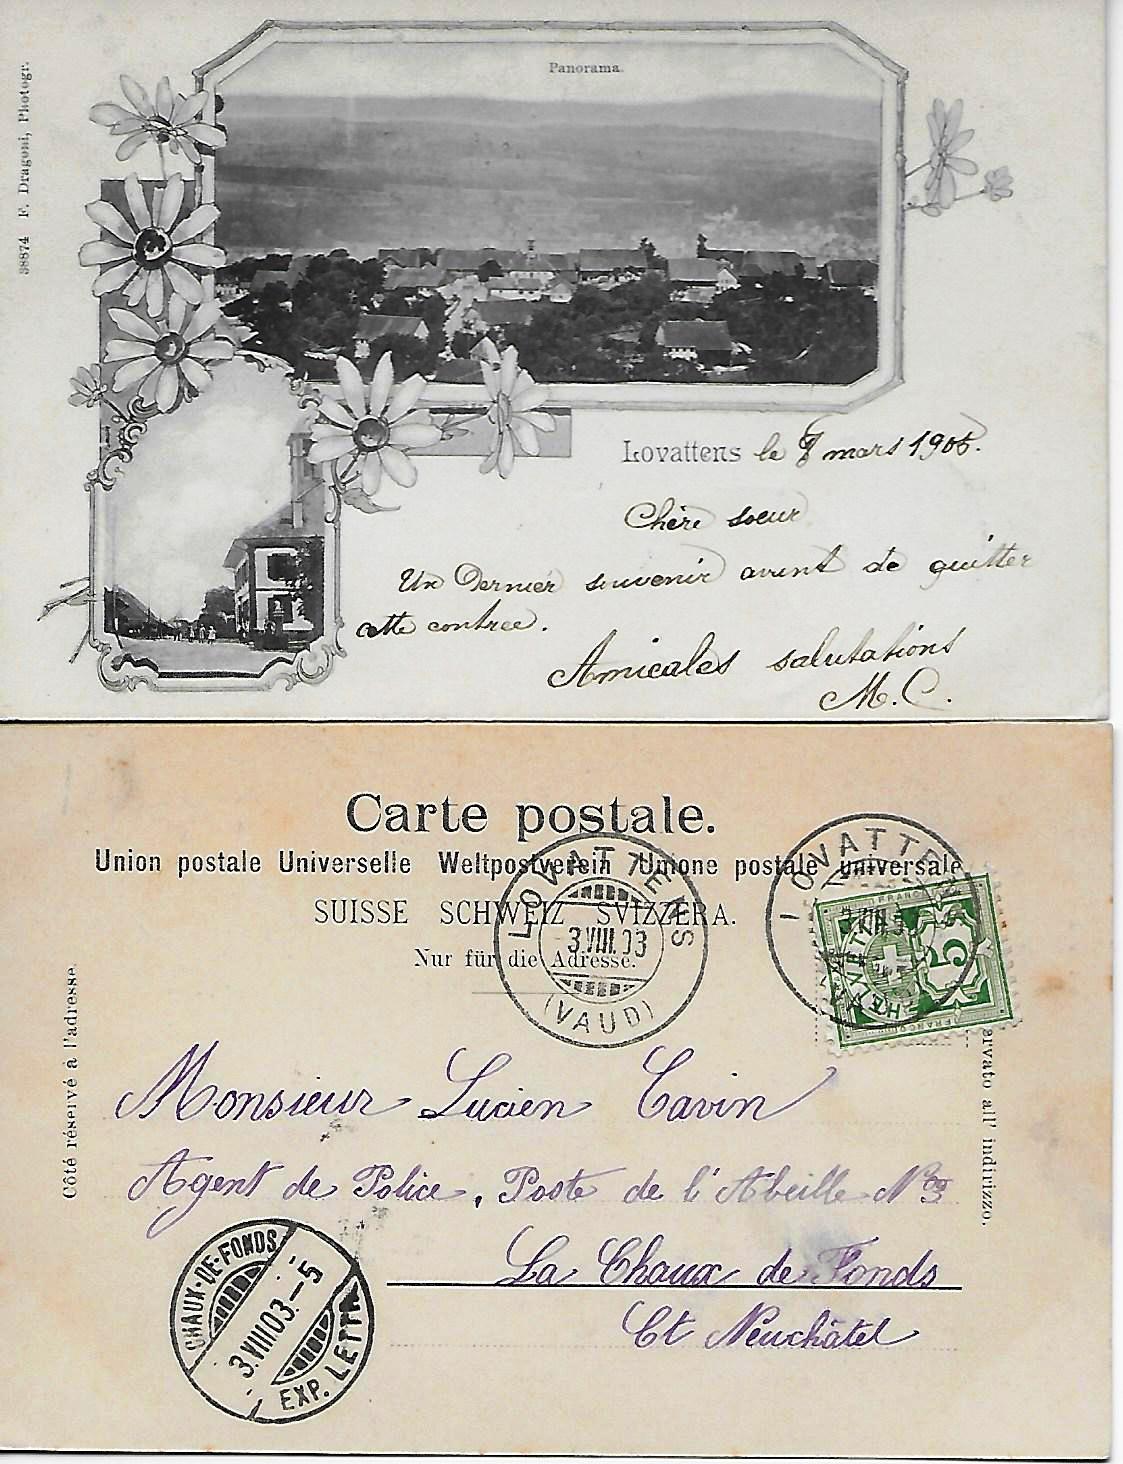 Panorama.
38874 F. Dragoni, Photogr.
Lovattens le 8 mars 1906.
Chère soeur
Un Dernier souvenir avent de quitter
cette contree.
Amicales salutations
M. C.
Carte postale.
Union postale Universelle Weltpostverein Unione postale universale
SUISSE SCHWEIZ SVIZZERA.
Nur für die Adresse.
LOVATTENS
3.VIII.03
(VAUD)
LOVATTENS
HELVETIA
FRANCO
5
FRANCO
Côté réservé à l'adresse.
ervato all' indirizzo.
Monsieur Lucien Cavin
Agent de Police, Poste de l'Abeille
La Chaux de Fonds
Ct Neuchâtel
CHAUX-DE-FONDS
3.VIII.03.-5
EXP. LETTR.